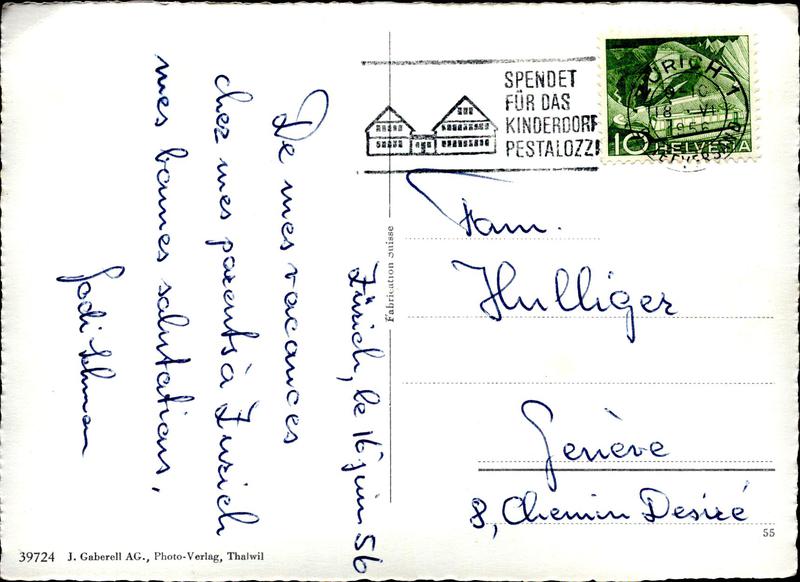 Zürich, le 16 juin 56
De mes vacances
chez mes parents à Zurich
mes bonnes salutations,
SPENDET
FÜR DAS
KINDERDORF
PESTALOZZI
ZÜRICH 1
1956
10 HELVETIA
Fam.
Hulliger
Genève
8, Chemin Desiré
Fabrication suisse
55
39724 J. Gaberell AG., Photo-Verlag, Thalwil